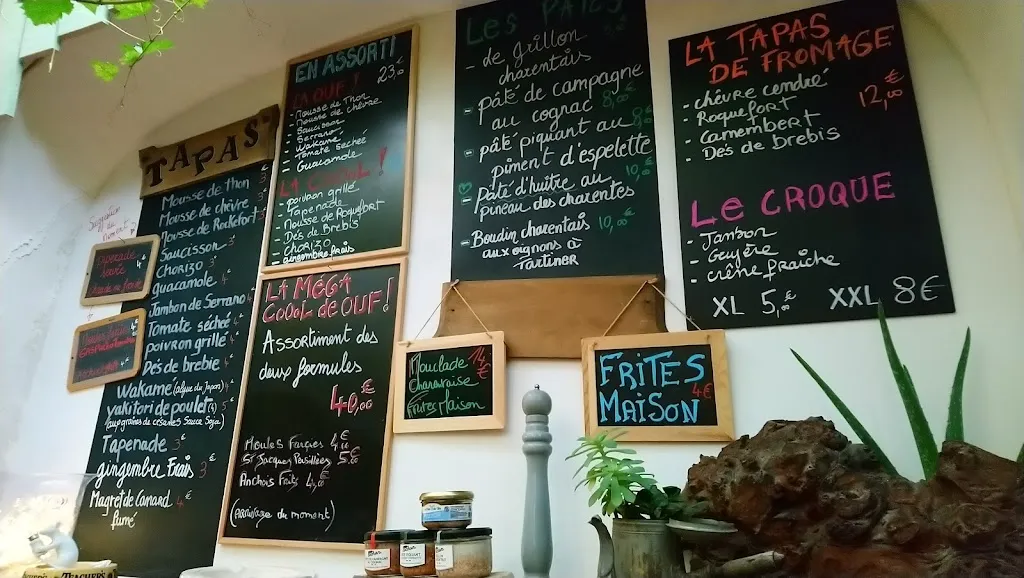 TAPAS
Mousse de thon 3€
Mousse de chèvre
Mousse de Rockefort
Saucisson 3€
CHORIZO 3€
guacamole 4€
Jambon de Serrano 4€
Tomate séchée 4€
poivron grillé 4€
Dés de brebie 4€
Wakame (algue du Japon) 4€
yakitori de poulet (4) 5€
Tapenade 3€
gingembre Frais 3€
Magret de Canard 4€
fumé
EN ASSORTI
23,00€
ÇA OUF !
- Mousse de Thon
- Mousse de chèvre
- Saucisson
- Serrano
- Wakamé
- Tomate séchée
- Guacamole
LA COOOL !
- poivron grillé
- Tapenade
- Mousse de Roquefort
- Dés de Brebis
- CHORIZO
- gingembre frais
LA MÉGA
COOOL de OUF !
Assortiment des
deux formules
40,00€
Moules Farcies 4€
St Jacques Persillées 5,00€
Anchois Faits 4,00€
(Arrivage du moment)
Les PATÉS
- de grillon
charentais
- pâté de campagne
au cognac 8,00€
- pâté piquant au
piment d'espelette
Pâté d'huître au 10,00€
pineau des charentes
- Boudin charentais 10,00€
aux oignons à
Tartiner
Mouclade 14€
charentaise
Frites Maison
LA TAPAS
DE FROMAGE
- chèvre cendré 12,00€
- Roquefort
- Camembert
- Dés de brebis
Le CROQUE
- Jambon
- Gruyère
- crème fraiche
XL 5,00€ XXL 8€
FRITES
MAISON 4€